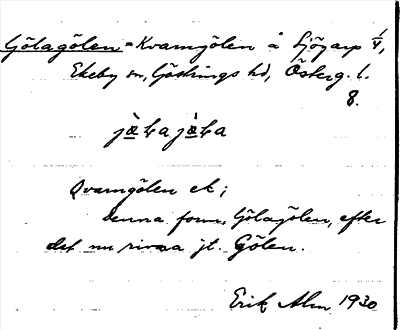 Gölagölen = Kvarngölen å Sjögarp 1/4,
Ekeby sn, Göstrings hd, Österg. l.
8.
Qvarngölen ek;
denna form, Gölagölen, efter
det nu rivna jt. Gölen.
Erik Alm 1930